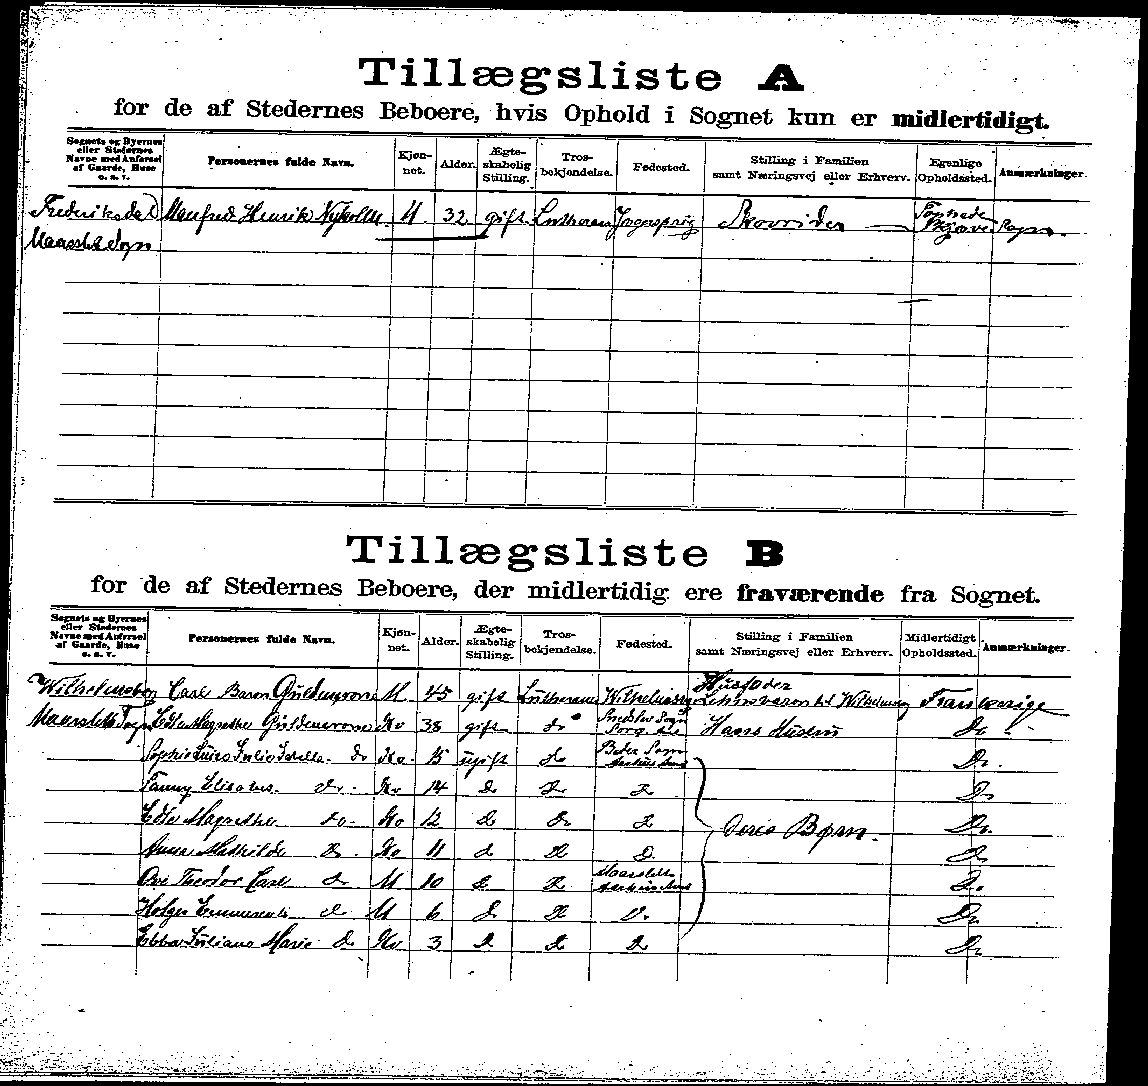 Tillægsliste A
for de af Stedernes Beboere, hvis Ophold i Sognet kun er midlertidigt.
Sognets og Byernes eller Stedernes Navne med Anførsel af Gaarde, Huse o. s. v. Personernes fulde Navn. Kjøn- net. Alder. Ægte- skabelig Stilling. Tros- bekjendelse. Fødested. Stilling i Familien samt Næringsvej eller Erhverv. Egenlige Opholdssted. Anmærkninger.
Frederiksdal Manfred Henrik M. 32 gift Lutheran Jægerspriis Skovrider Sogn.
Maarslet Sogn
Tillægsliste B
for de af Stedernes Beboere, der midlertidig ere fraværende fra Sognet.
Sognets og Byernes eller Stedernes Navne med Anførsel af Gaarde, Huse o. s. v. Personernes fulde Navn. Kjøn- net. Alder. Ægte- skabelig Stilling. Tros- bekjendelse. Fødested. Stilling i Familien samt Næringsvej eller Erhverv. Midlertidigt Opholdssted. Anmærkninger.
Wilhelmsborg Carl Baron Güldencrone M 45 gift Lutheran Wilhelmsborg Husfader Lehnsbaron til Wilhelmsborg
Maarslet Sogn Güldencrone Kv 38 gift do Hans Hustru Do
Sophie Do Kv. 15 ugift do Beder Sogn Aarhus Amt Do.
Fanny Elisabet Do. Kv 14 Do Do Do Do
Do. Kv 12 Do Do Do Deres Børn. Do
Anna Mathilde Do Kv 11 do Do D. Do
Ove Theodor Carl Do M 10 Do Do Maarslet Aarhus Amt Do.
Holger do M 6 Do Do Do. Do
Ebba Juliane Marie do Kv 3 Do Do Do Do